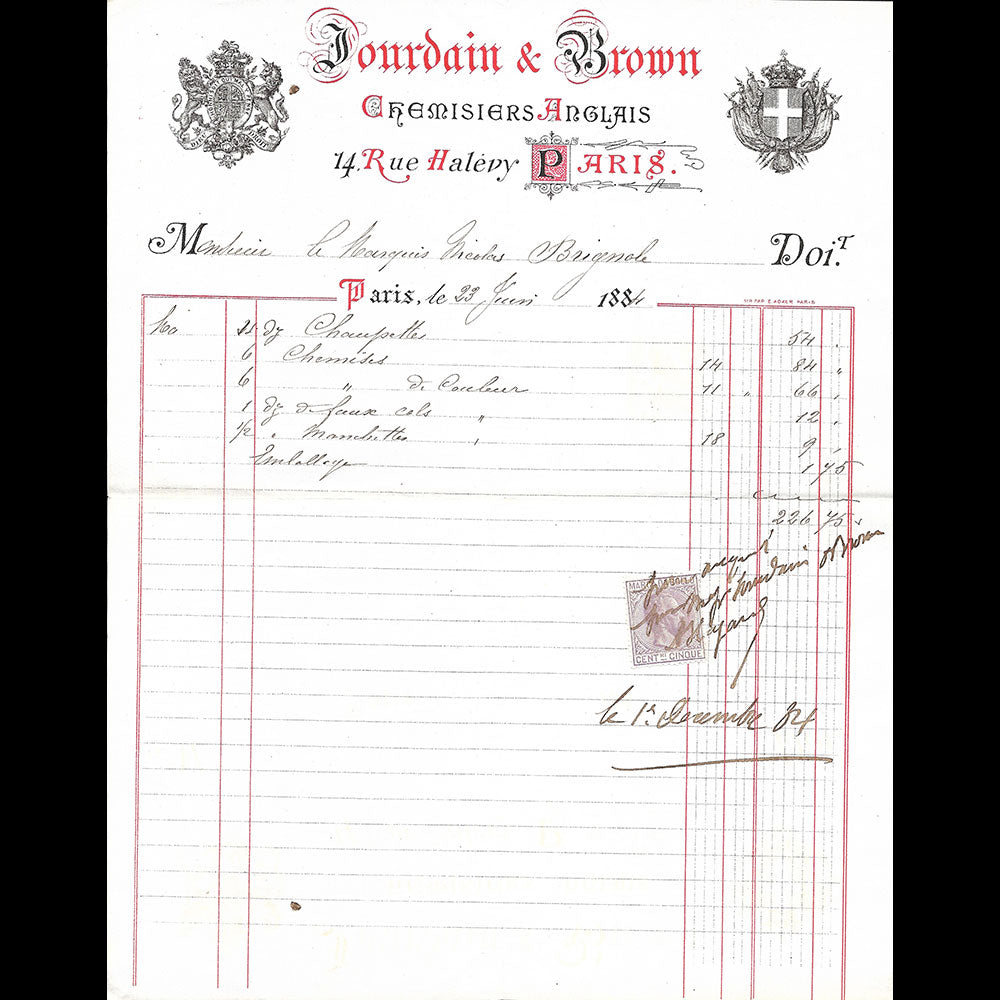 Jourdain & Brown
Chemisiers Anglais
14, Rue Halévy Paris.
Monsieur le Marquis Nicolas Brignole Doit.
Paris, le 23 Juin 1884
IMP. PAR E. ACKER PARIS
dz Chaussettes 54 "
6 Chemises 14 84 "
6 " de Couleur 11 " 66 "
1 dz de faux cols " 12 "
1/2 " Manchettes " 18 9 "
Emballage 1 75
226 75
pour acquit
Jourdain & Brown
MARCA DA BOLLO
CENT.MI CINQUE
le 1er Decembre 84